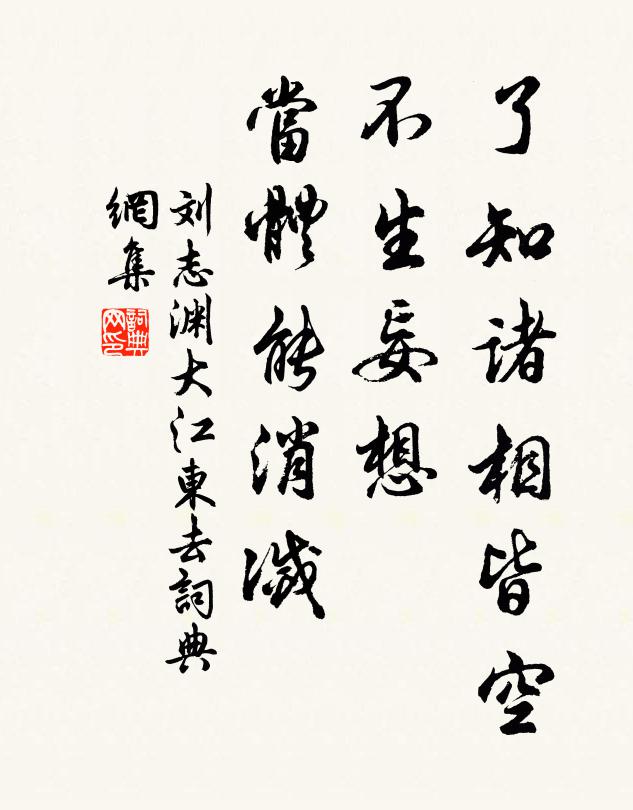 了知諸相皆空
不生妄想
當體能消滅
刘志渊大江東去詞典
網集
詞典
网印